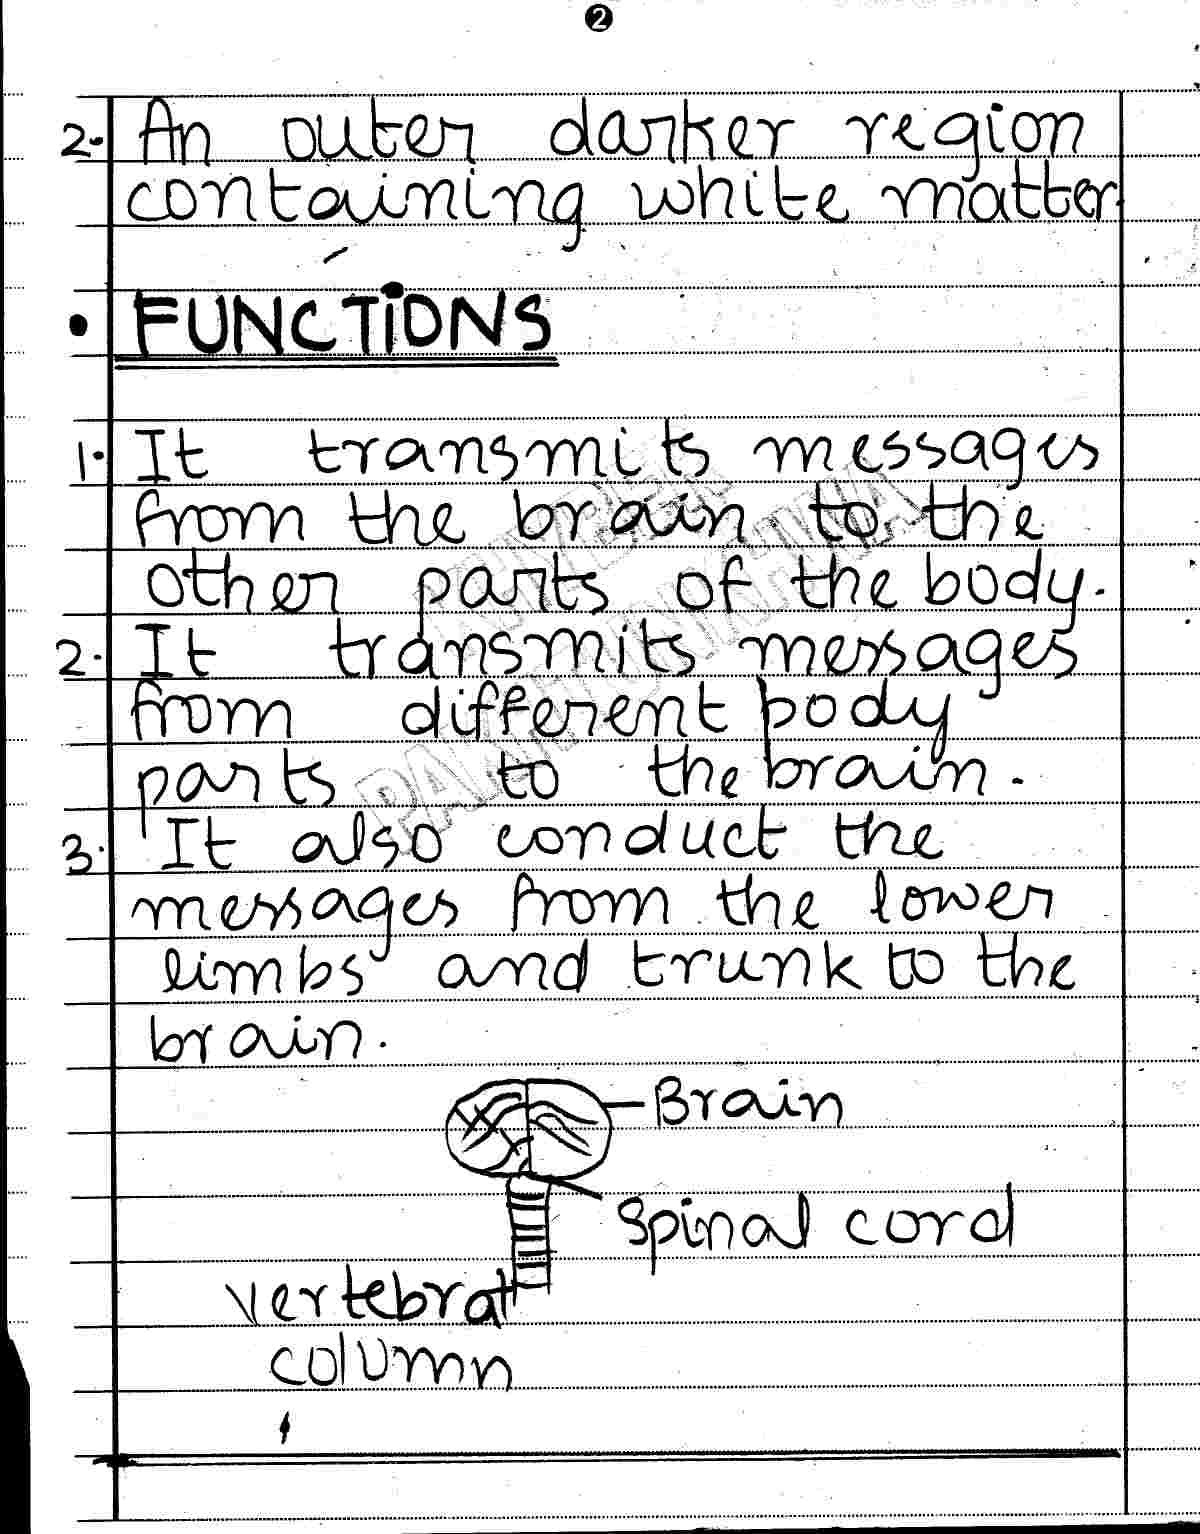 2
2. An outer darker region
containing white matter.
• FUNCTIONS
1. It transmits messages
from the brain to the
other parts of the body.
2. It transmits messages
from different body
parts to the brain.
3. It also conduct the
messages from the lower
limbs and trunk to the
brain.
Brain
Spinal cord
vertebrat
column
PAKHTUNKHWA